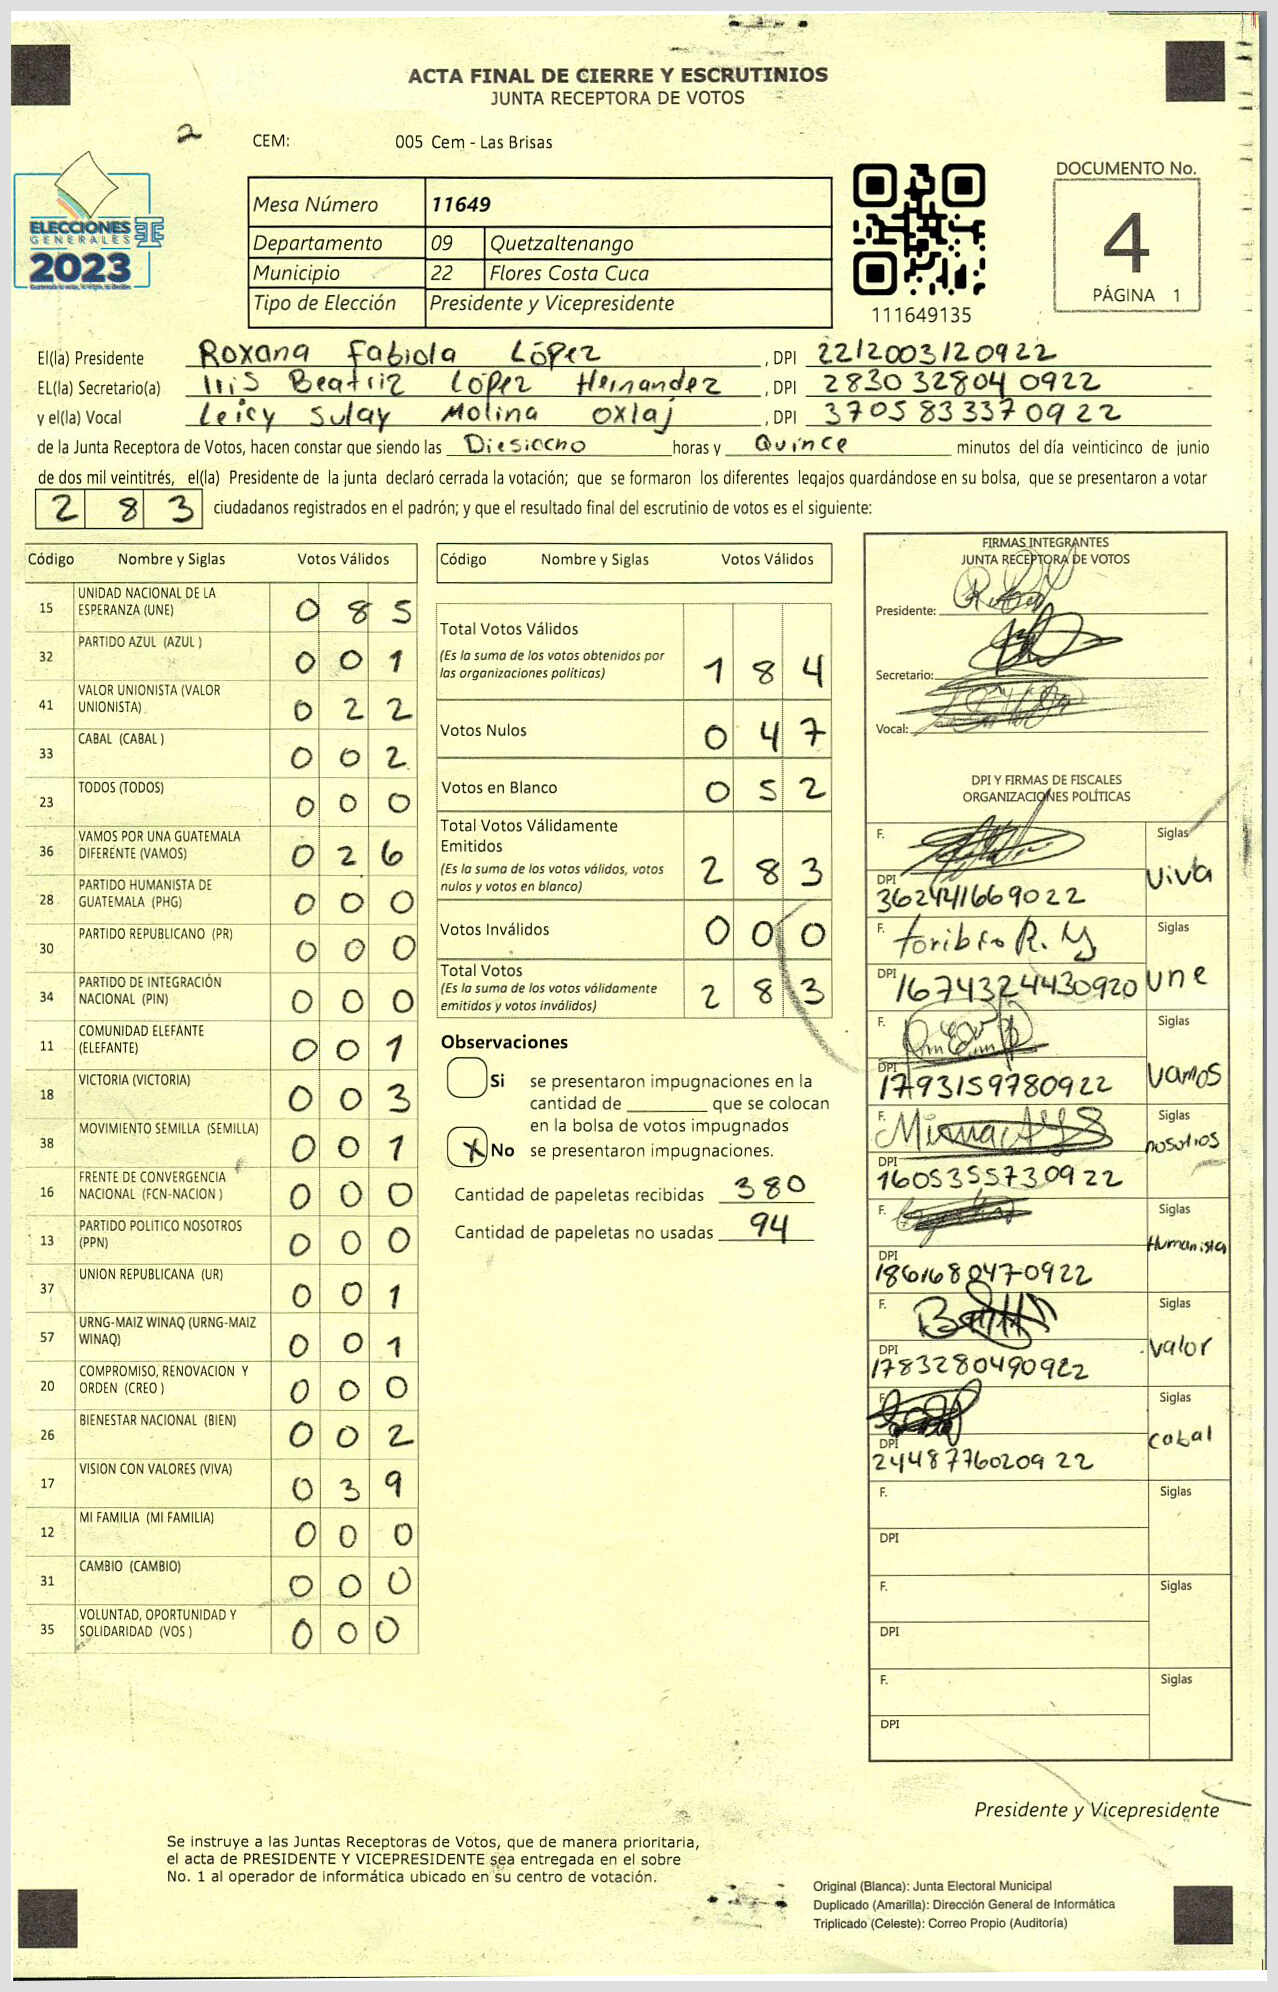 ACTA FINAL DE CIERRE Y ESCRUTINIOS
JUNTA RECEPTORA DE VOTOS
2
CEM: 005 Cem - Las Brisas
ELECCIONES
GENERALES
2023
Mesa Número 11649
Departamento 09 Quetzaltenango
Municipio 22 Flores Costa Cuca
Tipo de Elección Presidente y Vicepresidente
111649135
DOCUMENTO No.
4
PÁGINA 1
El(la) Presidente Roxana Fabiola López , DPI 2212003120922
EL(la) Secretario(a) Iris Beatriz López Hernandez , DPI 2830328040922
y el(la) Vocal Leicy Sulay Molina Oxlaj , DPI 3705833370922
de la Junta Receptora de Votos, hacen constar que siendo las Diesiocho horas y Quince minutos del día veinticinco de junio
de dos mil veintitrés, el(la) Presidente de la junta declaró cerrada la votación; que se formaron los diferentes legajos guardándose en su bolsa, que se presentaron a votar
2 8 3 ciudadanos registrados en el padrón; y que el resultado final del escrutinio de votos es el siguiente:
Código Nombre y Siglas Votos Válidos
15 UNIDAD NACIONAL DE LA
ESPERANZA (UNE) 0 8 5
32 PARTIDO AZUL (AZUL ) 0 0 1
41 VALOR UNIONISTA (VALOR
UNIONISTA) 0 2 2
33 CABAL (CABAL ) 0 0 2
23 TODOS (TODOS) 0 0 0
36 VAMOS POR UNA GUATEMALA
DIFERENTE (VAMOS) 0 2 6
28 PARTIDO HUMANISTA DE
GUATEMALA (PHG) 0 0 0
30 PARTIDO REPUBLICANO (PR) 0 0 0
34 PARTIDO DE INTEGRACIÓN
NACIONAL (PIN) 0 0 0
11 COMUNIDAD ELEFANTE
(ELEFANTE) 0 0 1
18 VICTORIA (VICTORIA) 0 0 3
38 MOVIMIENTO SEMILLA (SEMILLA) 0 0 1
16 FRENTE DE CONVERGENCIA
NACIONAL (FCN-NACION ) 0 0 0
13 PARTIDO POLITICO NOSOTROS
(PPN) 0 0 0
37 UNION REPUBLICANA (UR) 0 0 1
57 URNG-MAIZ WINAQ (URNG-MAIZ
WINAQ) 0 0 1
20 COMPROMISO, RENOVACION Y
ORDEN (CREO ) 0 0 0
26 BIENESTAR NACIONAL (BIEN) 0 0 2
17 VISION CON VALORES (VIVA) 0 3 9
12 MI FAMILIA (MI FAMILIA) 0 0 0
31 CAMBIO (CAMBIO) 0 0 0
35 VOLUNTAD, OPORTUNIDAD Y
SOLIDARIDAD (VOS ) 0 0 0
Código Nombre y Siglas Votos Válidos
Total Votos Válidos
(Es la suma de los votos obtenidos por
las organizaciones políticas) 1 8 4
Votos Nulos 0 4 7
Votos en Blanco 0 5 2
Total Votos Válidamente
Emitidos
(Es la suma de los votos válidos, votos
nulos y votos en blanco) 2 8 3
Votos Inválidos 0 0 0
Total Votos
(Es la suma de los votos válidamente
emitidos y votos inválidos) 2 8 3
Observaciones
Si se presentaron impugnaciones en la
cantidad de ________ que se colocan
en la bolsa de votos impugnados
X No se presentaron impugnaciones.
Cantidad de papeletas recibidas 380
Cantidad de papeletas no usadas 94
FIRMAS INTEGRANTES
JUNTA RECEPTORA DE VOTOS
Presidente:
Secretario:
Vocal:
DPI Y FIRMAS DE FISCALES
ORGANIZACIONES POLÍTICAS
F. Siglas
viva
DPI
362441669022
F. toribio R. Y Siglas
une
DPI 1674324430920
F. Siglas
vamos
DPI
1793159780922
F. Siglas
nosotros
DPI
1605355730922
F. Siglas
Humanista
DPI
1861680470922
F. Siglas
valor
DPI
1783280490922
F. Siglas
cabal
DPI
2448776020922
F. Siglas
DPI
F. Siglas
DPI
F. Siglas
DPI
Presidente y Vicepresidente
Se instruye a las Juntas Receptoras de Votos, que de manera prioritaria,
el acta de PRESIDENTE Y VICEPRESIDENTE sea entregada en el sobre
No. 1 al operador de informática ubicado en su centro de votación.
Original (Blanca): Junta Electoral Municipal
Duplicado (Amarilla): Dirección General de Informática
Triplicado (Celeste): Correo Propio (Auditoría)